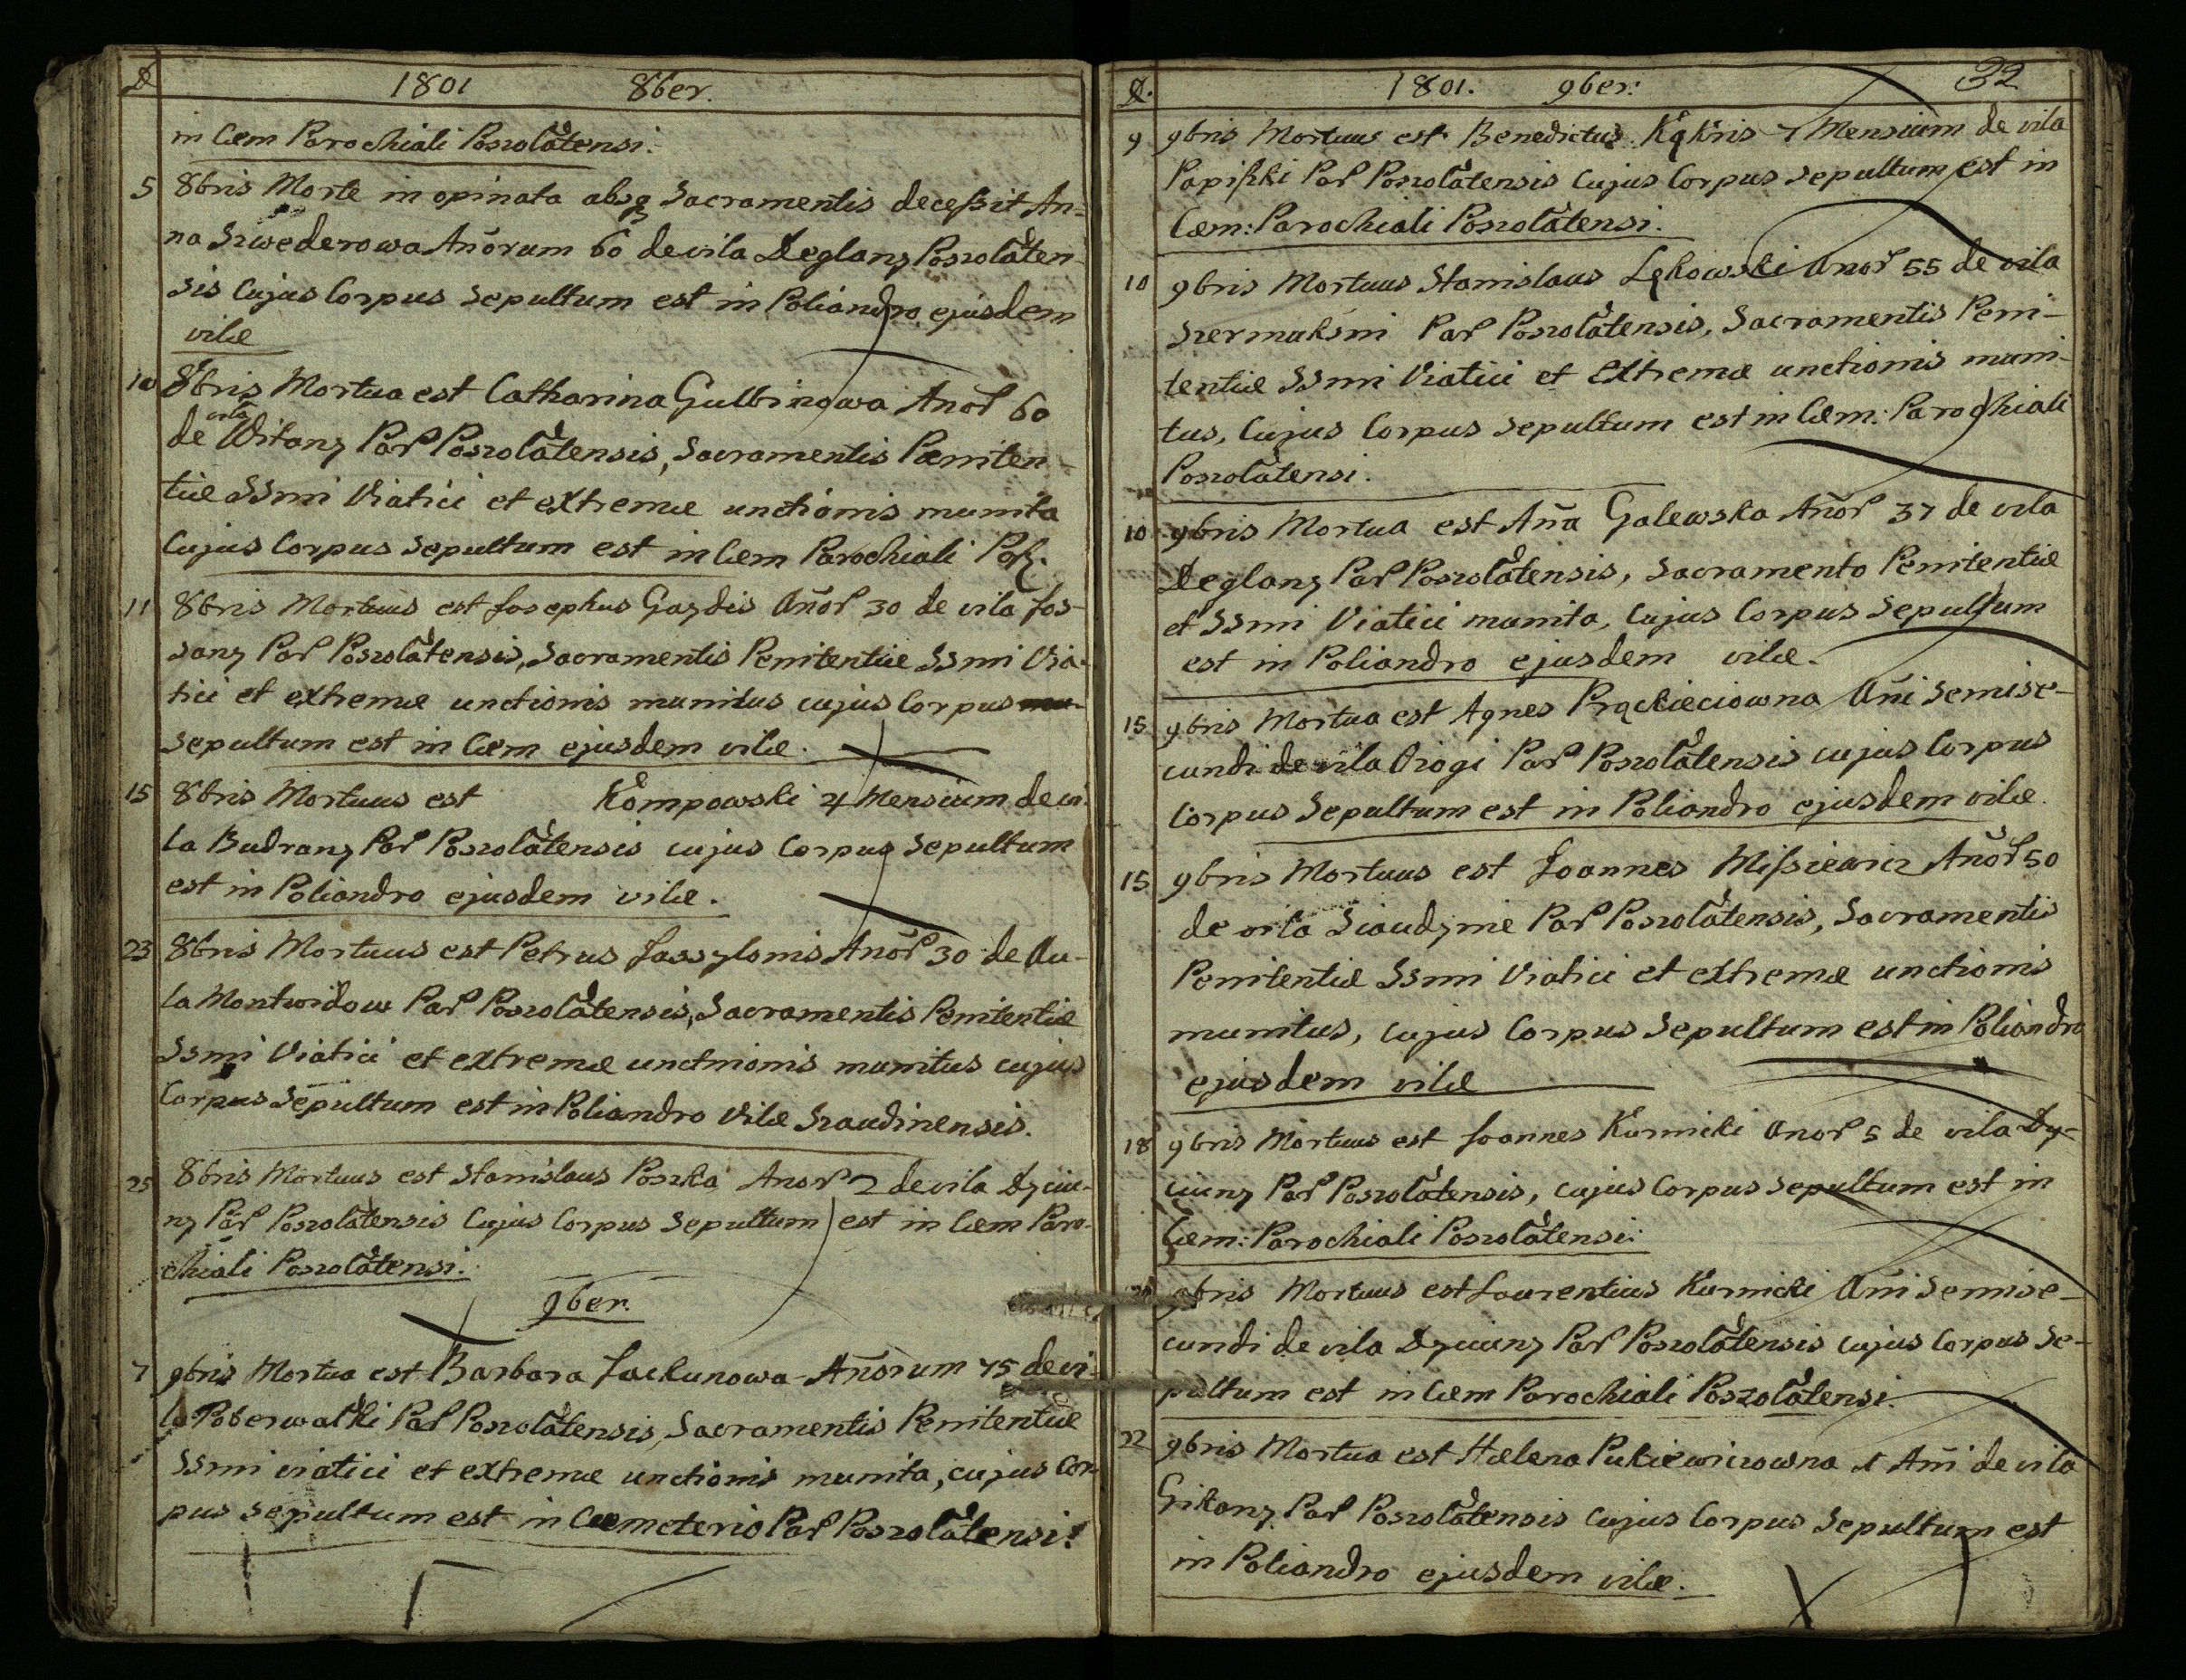 D 1801 8ber.
in Cæm Parochiali Poszolatensi.
5 8bris Morte in opinata absq Sacramentis deceßit An=
na Szwederowa Añorum 60 de vila Deglany Poszolaten
sis Cujus Corpus Sepultum est in Poliandro ejusdem
vilæ
10 8bris Mortua est Catharina Gulbinowa Anor 60
de vila Witany Par Poszolatensis, Sacramentis Pœniten-
tiæ SSmi Viatici et extremæ unctionis munita
Cujus Corpus Sepultum est in Cæm Parochiali Posz.
11 8bris Mortuus est Josephus Gaydis Añor 30 de vila Jos-
sany Par Poszolatensis, Sacramentis Penitentiæ SSmi Via-
tici et extremæ unctionis munitus cujus Corpus
Sepultum est in Cæm ejusdem vilæ.
15 8bris Mortuus est Kompowski 4 Mensium de vi-
la Budrany Par Poszolatensis cujus Corpus Sepultum
est in Poliandro ejusdem vilæ.
23 8bris Mortuus est Petrus Jassylonis Añor 30 de Au-
la Montwidow Par Poszolatensis, Sacramentis Penitentiæ
SSmi Viatici et extremæ unctnionis munitus cujus
Corpus Sepultum est in Poliandro Vilæ Szaudinensis.
25 8bris Mortuus est Stanislaus Poszka Anor 2 de vila Dyciu-
ny Par Poszolatensis Cujus Corpus Sepultum est in Cæm Paro-
chiali Poszolatensi.
9ber.
7 9bris Mortua est Barbara Jackunowa Añorum 75 de vi-
la Poberwalki Par Poszolatensis, Sacramentis Penitentiæ
SSmi viatici et extremæ unctionis munita, cujus Cor-
pus sepultum est in Cæmeterio Par Poszolatensi.
D. 1801. 9ber: 32
9 9bris Mortuus est Benedictus Kąkris 7 Mensium de vila
Papißki Par Poszolatensis Cujus Corpus Sepultum est in
Cæm: Parochiali Poszolatensi.
10 9bris Mortuus Stanislaus Lękowski Anor 55 de vila
Szermuksni Par Poszolatensis, Sacramentis Peni-
tentiæ SSmi Viatici et Extremæ unctionis muni-
tus, Cujus Corpus Sepultum est in Cæm: Parochiali
Poszolatensi.
10 9bris Mortua est Aña Galewska Añor 37 de vila
Deglany Par Poszolatensis, Sacramento Penitentiæ
et SSmi Viatici munita, Cujus Corpus Sepultum
est in Poliandro ejusdem vilæ.
15 9bris Mortua est Agnes Prąckieciowna Añi Semise-
cundi de vila Oiogi Par Poszolatensis cujus Corpus
Corpus Sepultum est in Poliandro ejusdem vilæ.
15 9bris Mortuus est Joannes Mißiewicz Añor 50
de vila Siaudynie Par Poszolatensis, Sacramentis
Penitentiæ SSmi Viatici et extremæ unctionis
munitus, cujus Corpus Sepultum est in Poliandro
ejusdem vilæ
18 9bris Mortuus est Joannes Kurnicki Anor 5 de vila Dy-
ciuny Par Poszolatensis, cujus Corpus Sepultum est in
Cæm: Parochiali Poszolatensi:
9bris Mortuus est Laurentius Kurnicki Añi Semise-
cundi de vila Dyciuny Par Poszolatensis cujus Corpus Se-
pultum est in Cæm Parochiali Poszolatensi.
22 9bris Mortua est Hælena Pukiewiczowna 1 Añi de vila
Gikany Par Poszolatensis Cujus Corpus Sepultum est
in Poliandro ejusdem vilæ.